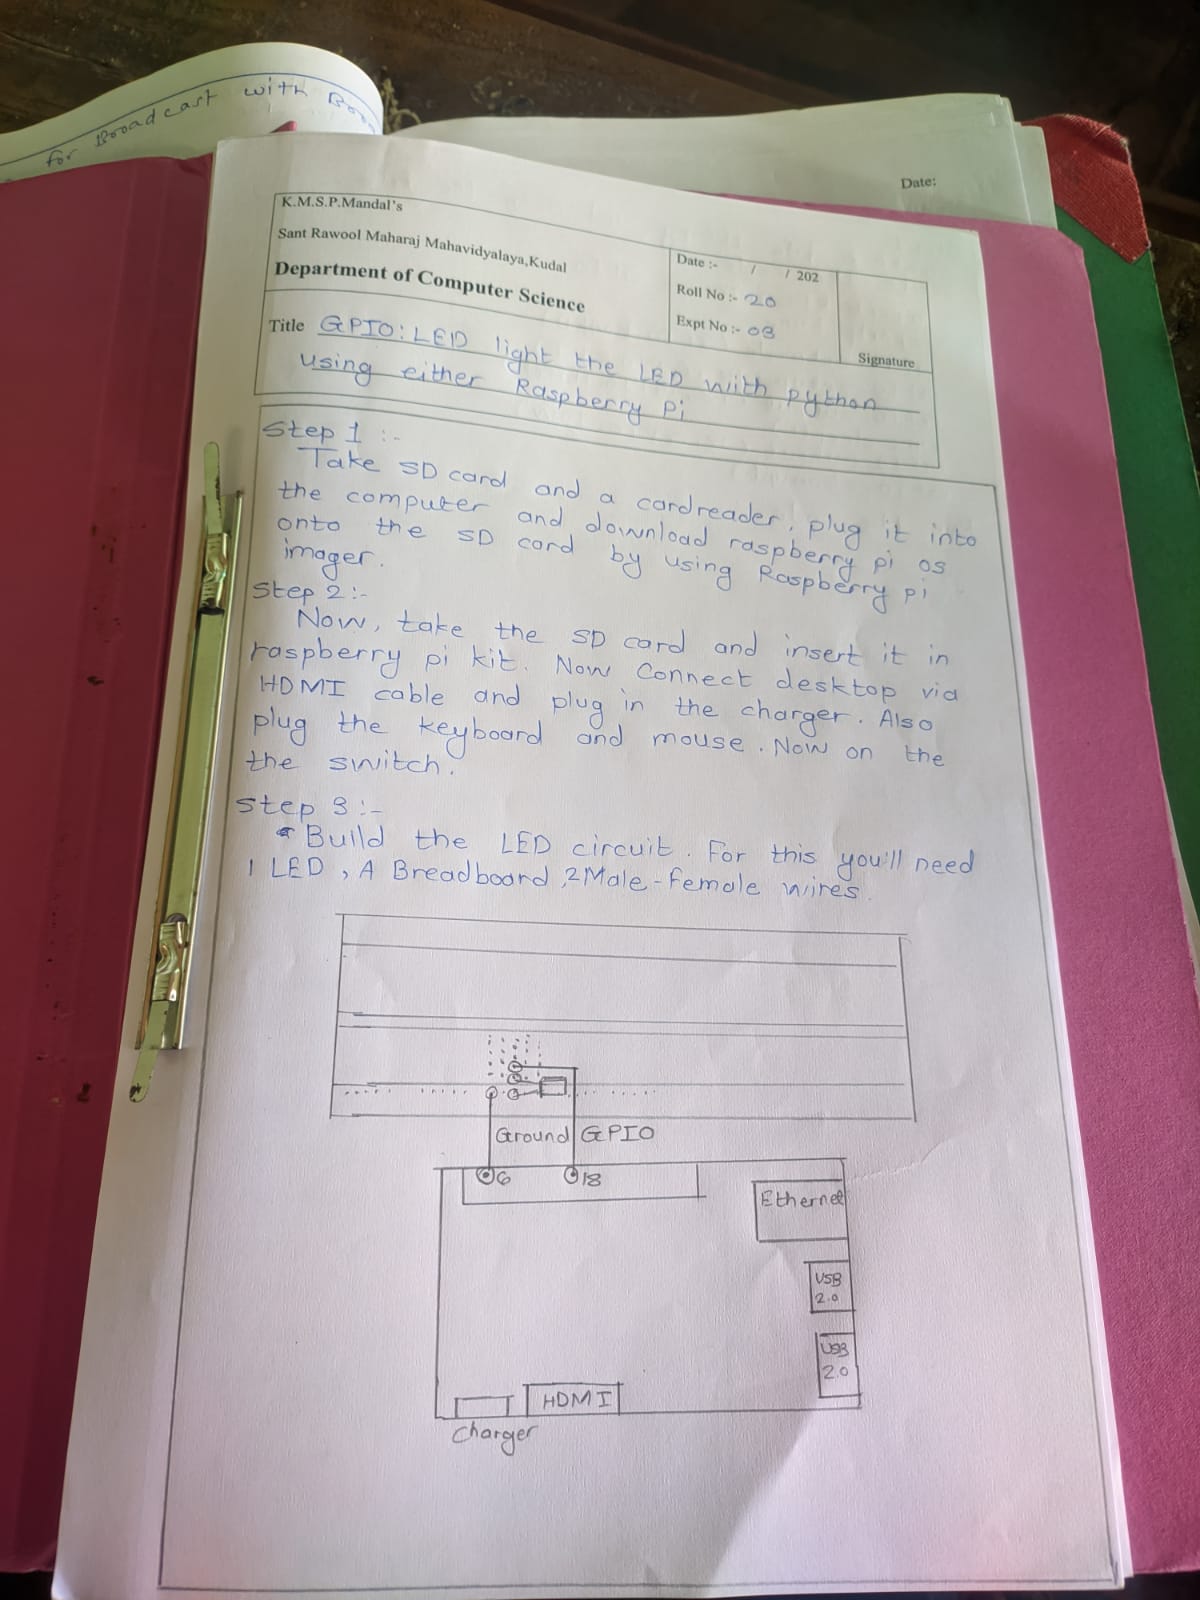 for Broadcast with
Date:
K.M.S.P.Mandal's
Sant Rawool Maharaj Mahavidyalaya,Kudal
Department of Computer Science
Date :- / / 202
Roll No :- 20
Expt No :- 03
Signature
Title GPIO: LED light the LED with python
using either Raspberry Pi
Step 1 :-
Take SD card and a cardreader, plug it into
the computer and download raspberry pi os
onto the SD card by using Raspberry pi
imager.
Step 2:-
Now, take the SD card and insert it in
raspberry pi kit. Now Connect desktop via
HDMI cable and plug in the charger. Also
plug the keyboard and mouse. Now on the
the switch.
Step 3 :-
Build the LED circuit. For this you'll need
1 LED, A Breadboard, 2 Male-female wires.
Ground GPIO
6 18
Ethernet
USB
2.0
USB
2.0
HDMI
Charger